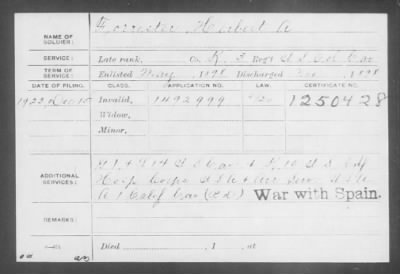 Forrester, Herbert A
NAME OF SOLDIER:
SERVICE: Late rank, Co. K, 3 Reg't U S Vol Cav
TERM OF SERVICE: Enlisted May, 1898 Discharged 1898
DATE OF FILING. CLASS. APPLICATION NO. LAW. CERTIFICATE NO.
1922, Dec 15 Invalid, 1492999 1250428
Widow,
Minor,
ADDITIONAL SERVICES: 14 U S Cav
Hosp Corps
A 1 Calif Cav War with Spain.
REMARKS:
Died , 1 , at